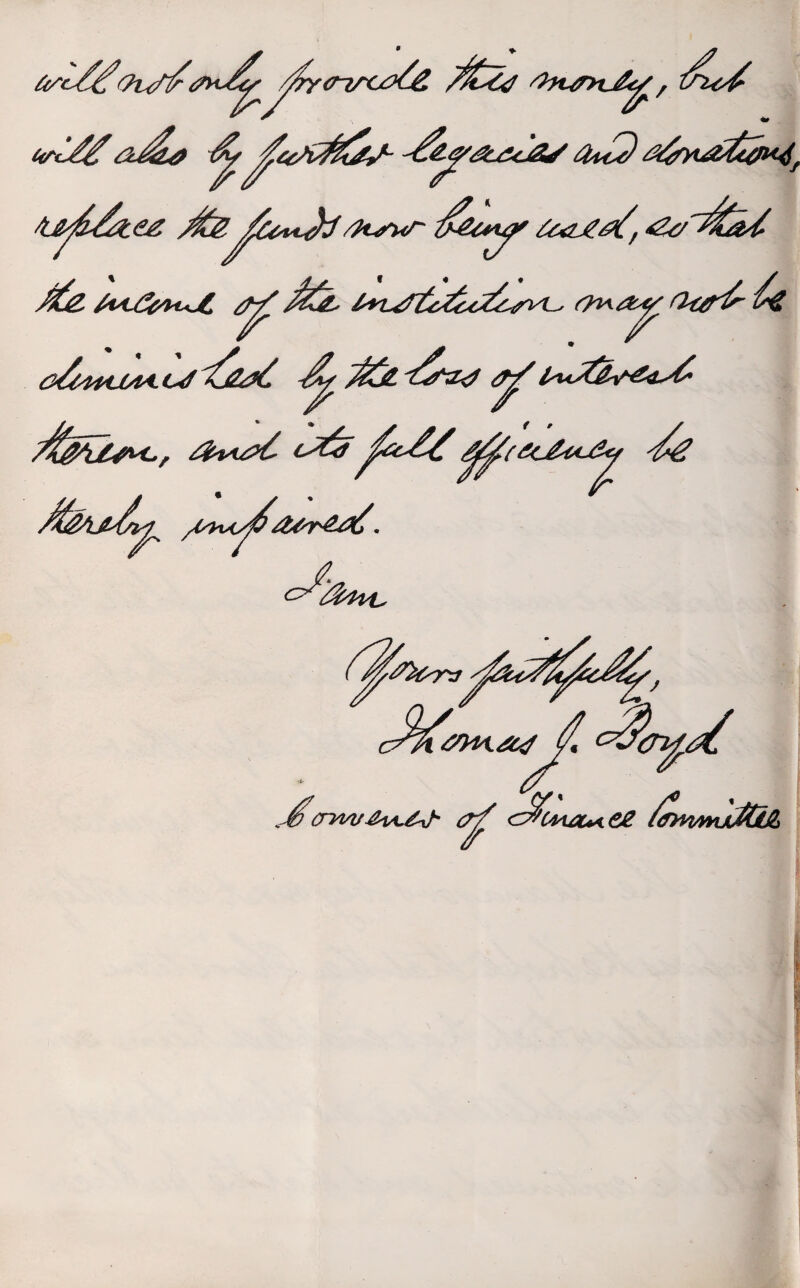 will not only provide this money, but
will also by further legacies and donations,
replace the funds now being used, so that
the income of the institution may not be
diminished by the loss of interest
thereon, and its full efficiency be
thereby impaired.
I am
Yours faithfully,
Thomas J. Boyd
Convener of Finance Committee